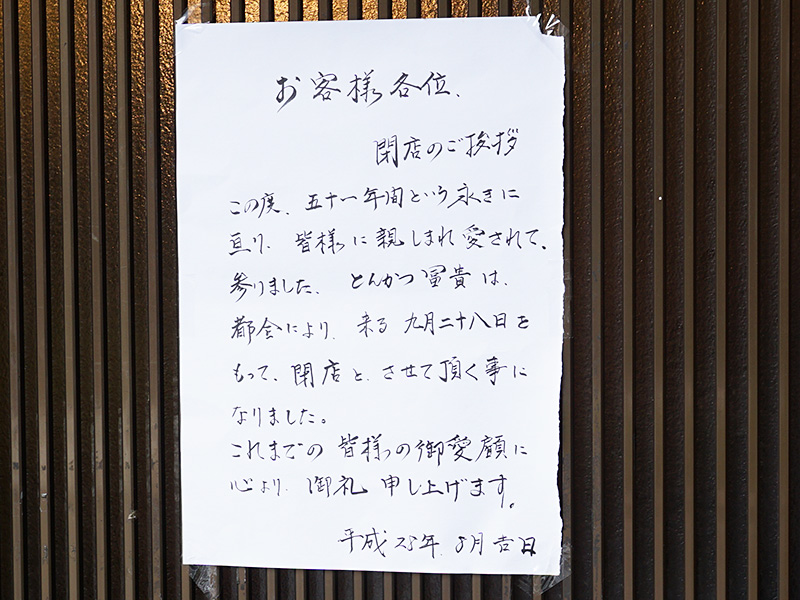 お客様各位、
閉店のご挨拶
この度、五十一年間という永きに
亘り、皆様に親しまれ愛されて、
参りました、とんかつ冨貴は、
都合により、来る九月二十八日を
もって、閉店と、させて頂く事に
なりました。
これまでの皆様の御愛顧に
心より、御礼申し上げます。
平成25年、8月吉日